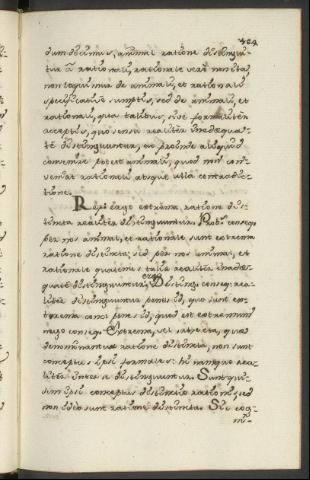 404
dum dicimus, animal ratione distingui-
tur a rationali, rationale vero non ita,
non loquimur de animali, et rationali
specificative sumptis, sed de animali, et
rationali, qua talibus, sive formaliter
acceptis, quo sensu realiter inadequa-
te distinguuntur, ac proinde aliquid
convenire potest animali, quod non con-
veniat rationali absque ulla contradic-
tione.
Repl. ergo extrema ratione dis-
tincta realiter distinguuntur. Prob. conseq.
per nos animal, et rationale sunt extrema
ratione distincta; sed per nos animal, et
rationale quatenus talia realiter inade-
quate distinguuntur; ergo Disting. conseq. rea-
liter distinguuntur penes id, quo sunt ex-
trema conc. penes id, quod est extremum
nego conseq. Extrema, vel extrema, quae
denominantur ratione distincta, non sunt
conceptus ipsi formales: hi namque rea-
liter inter se distinguuntur. Sunt qui-
dem ipsi conceptus distinctio rationis, sed
non ideo sunt ratione distincta. Sic cog-
ni-